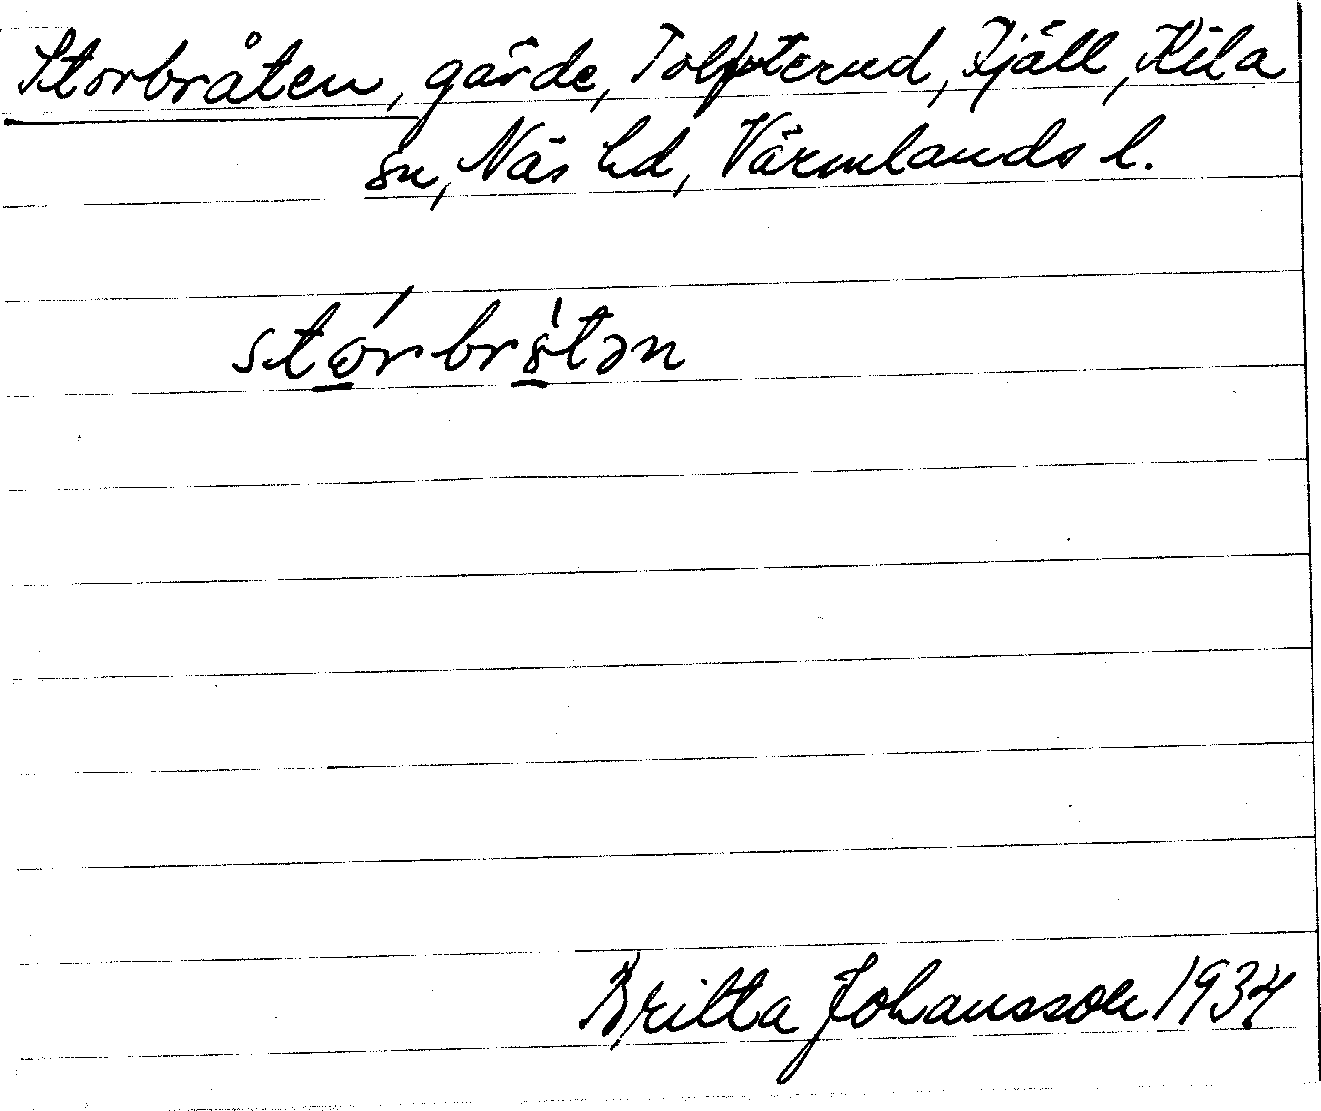 Storbråten, gärde, Tolfsterud, Fjäll, Kila
sn, Näs hd, Värmlands l.
stórbr̀åtən
Britta Johansson 1934